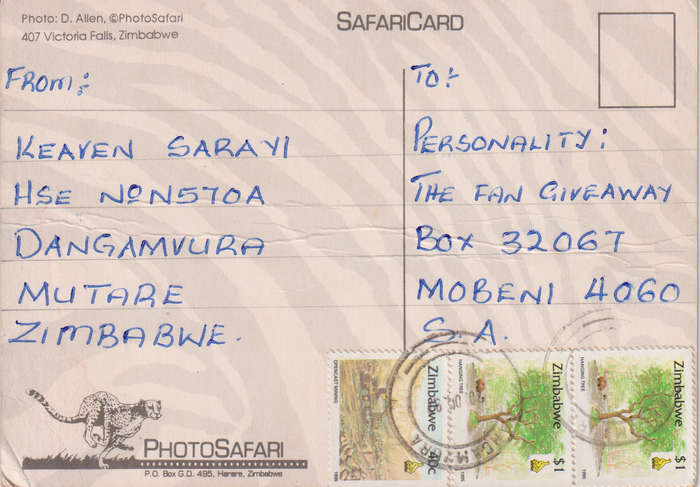 Photo: D. Allen, ©PhotoSafari
407 Victoria Falls, Zimbabwe
SAFARICARD
FROM:
KEAVEN SARAYI
HSE No N570A
DANGAMVURA
MUTARE
ZIMBABWE.
TO:-
PERSONALITY:
THE FAN GIVEAWAY
BOX 32067
MOBENI 4060
S.A.
OPENCAST MINING
Zimbabwe
40c
1995
HANGING TREE
Zimbabwe
$1
1995
HANGING TREE
Zimbabwe
$1
1995
PHOTOSAFARI
P.O. Box G.D. 495, Harare, Zimbabwe